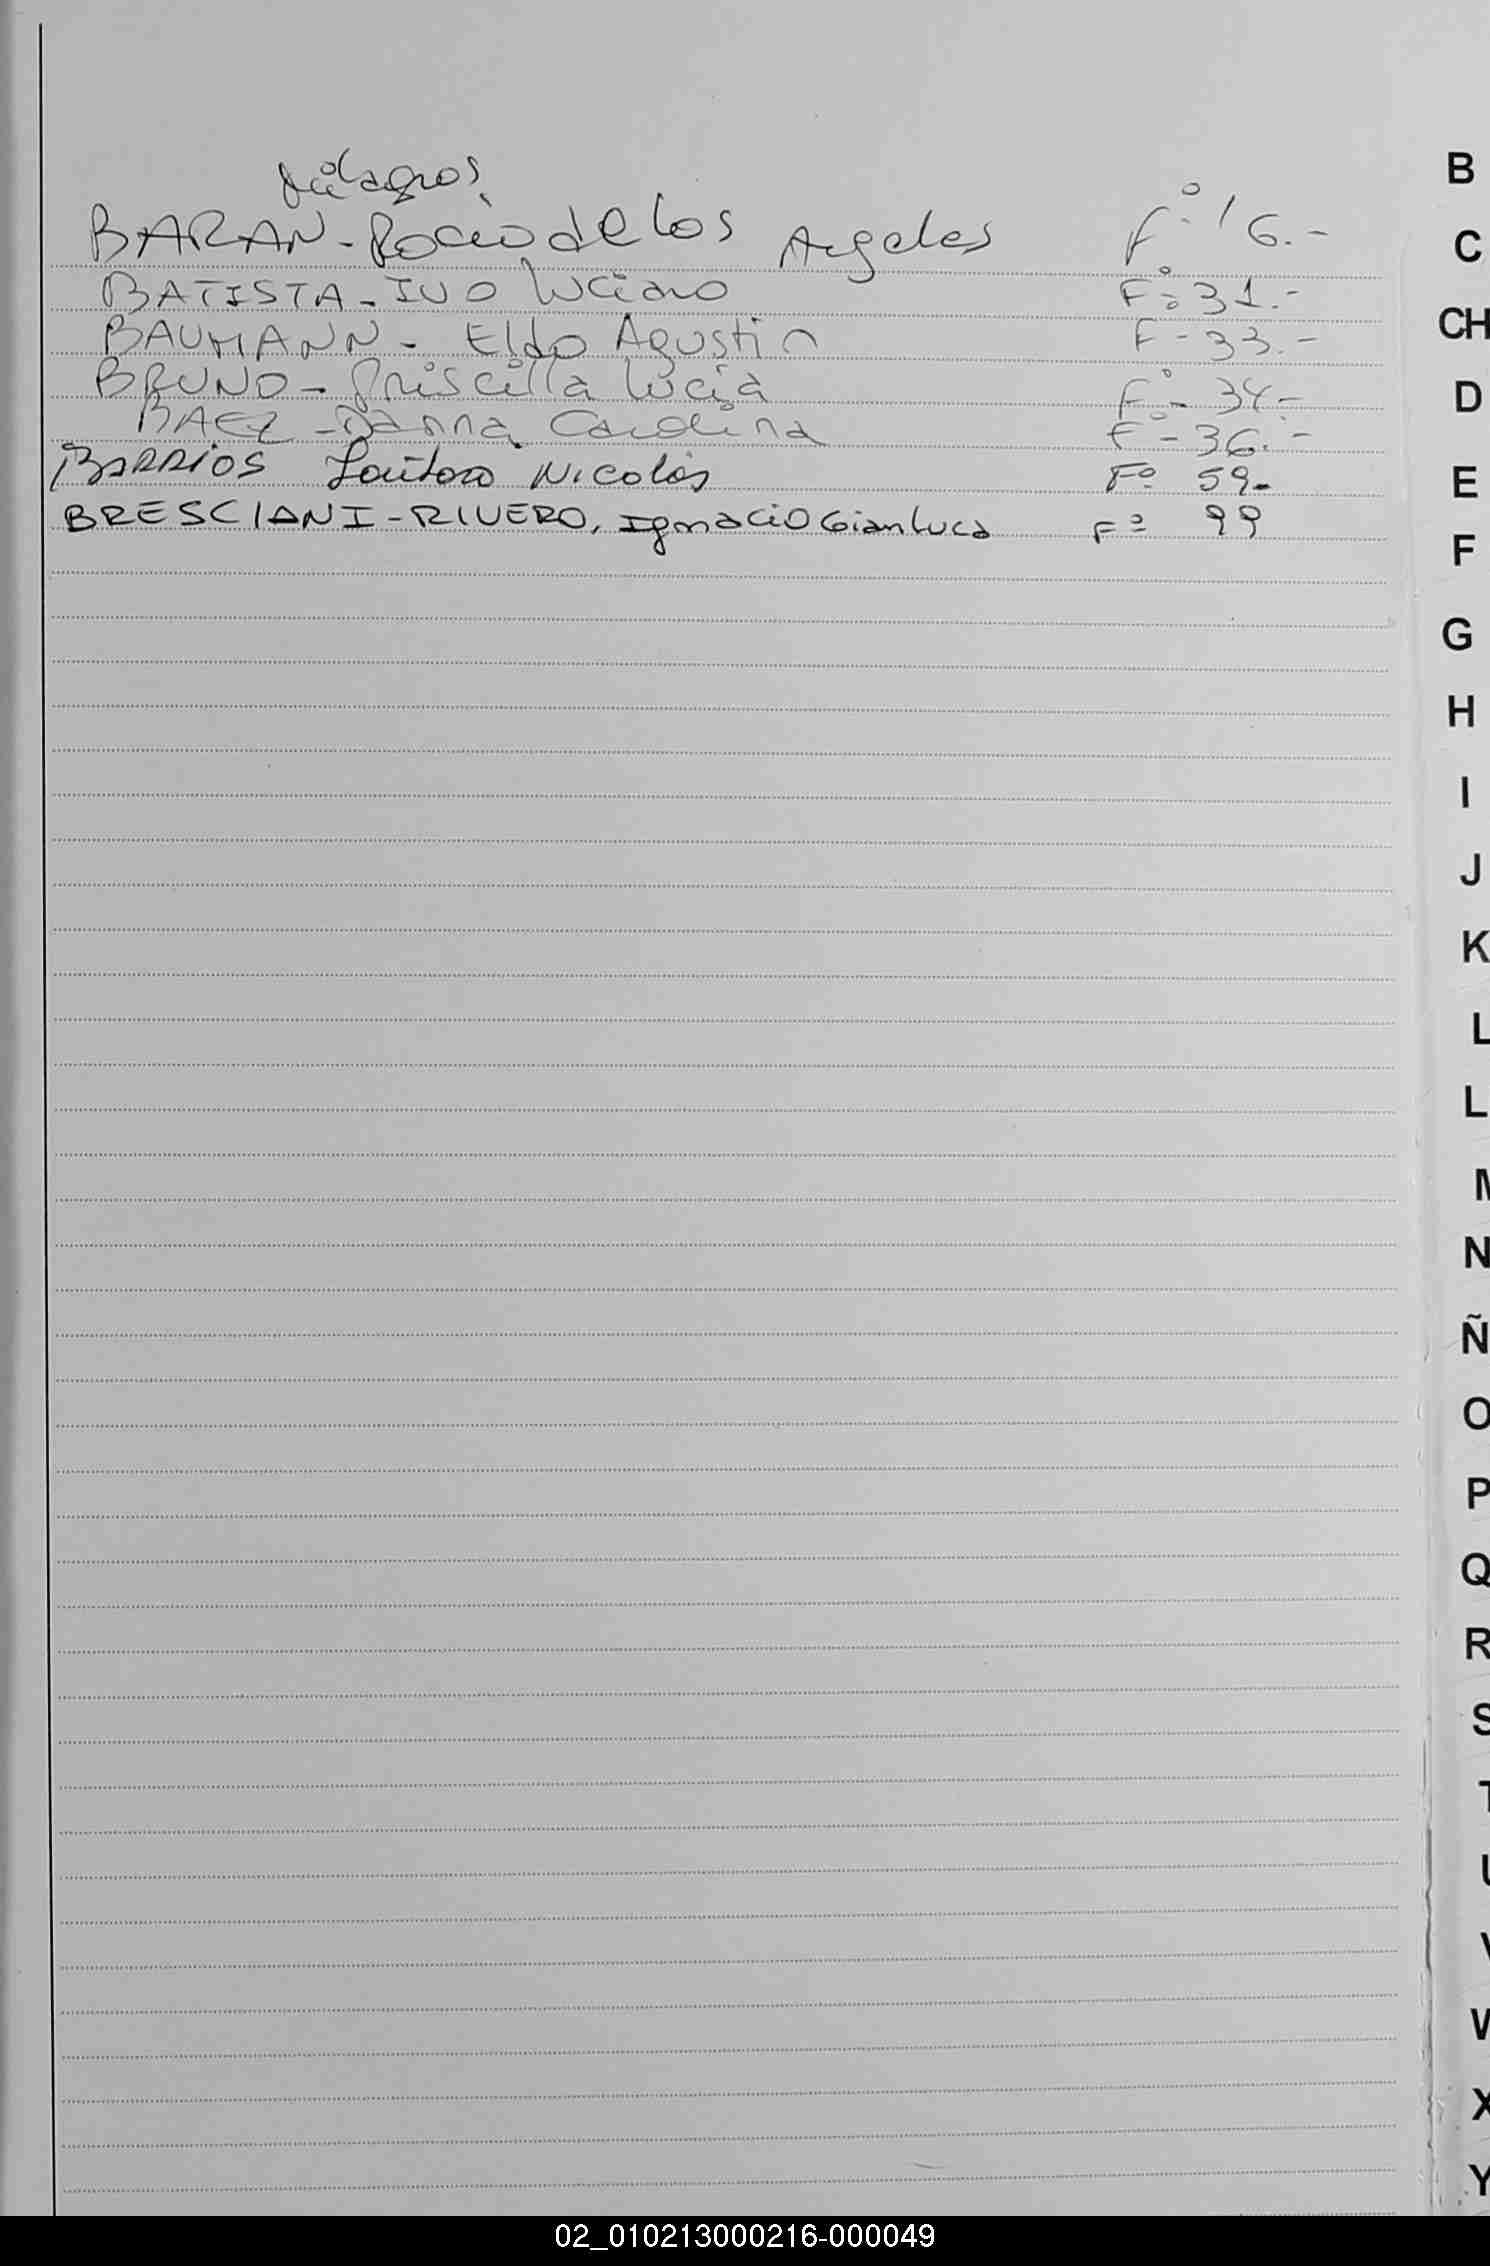 Milagros
BARAN - Rocio de los Angeles F° 16.-
BATISTA - IVO Luciano F° 31.-
BAUMANN - Eldo Agustin F - 33.-
BRUNO - Priscilla Lucia F° - 34.-
BAEZ - Danna Carolina F° - 36.-
BARRIOS Lautaro Nicolás Fº 59-
BRESCIANI - RIVERO, Ignacio Gianluca Fº 99
B
C
CH
D
E
F
G
H
I
J
K
L
L
M
N
Ñ
O
P
Q
R
S
T
U
V
W
X
Y
02_010213000216-000049